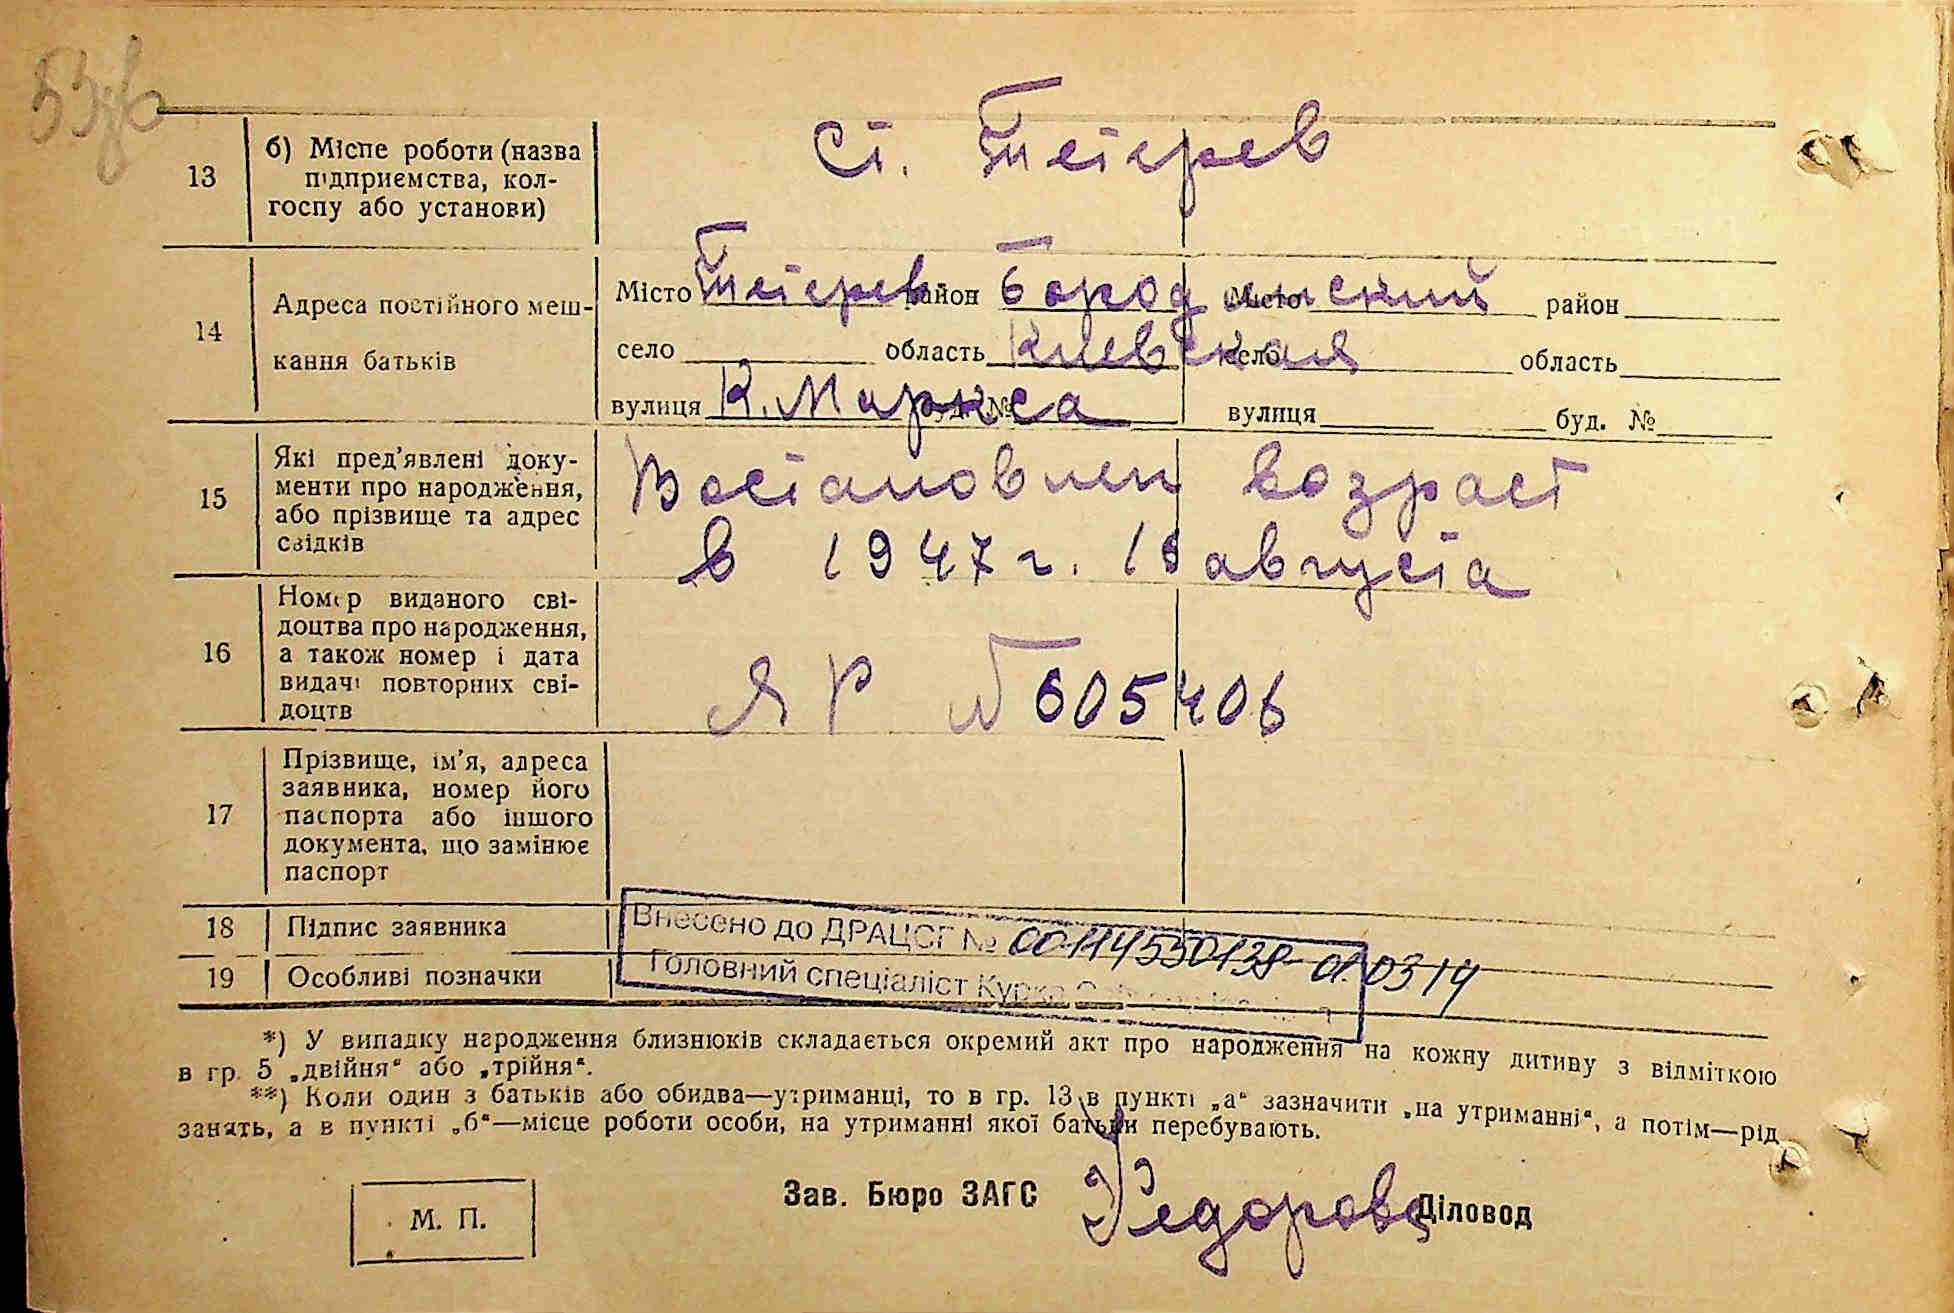 13
б) Місце роботи (назва
підприємства, кол-
госпу або установи)
ст. Тетерев
14
Адреса постійного меш-
кання батьків
Місто Тетерев район Бородянский Місто район
село область Киевская село область
вулиця К. Маркса буд. № вулиця буд. №
15
Які пред'явлені доку-
менти про народження,
або прізвище та адрес
свідків
Востановлен возраст
в 1947 г. 18 августа
16
Номер виданого сві-
доцтва про народження,
а також номер і дата
видачі повторних сві-
доцтв
ЯР № 605406
17
Прізвище, ім'я, адреса
заявника, номер його
паспорта або іншого
документа, що замінює
паспорт
18 Підпис заявника
19 Особливі позначки
Внесено до ДРАЦСГ № 00114550138 01.03 14
Головний спеціаліст Курка
*) У випадку народження близнюків складається окремий акт про народження на кожну дитину з відміткою
в гр. 5 „двійня“ або „трійня“.
**) Коли один з батьків або обидва—утриманці, то в гр. 13 в пункті „а“ зазначити „на утриманні“, а потім—рід
занять, а в пункті „б“—місце роботи особи, на утриманні якої батьки перебувають.
М. П.
Зав. Бюро ЗАГС Федорова Діловод